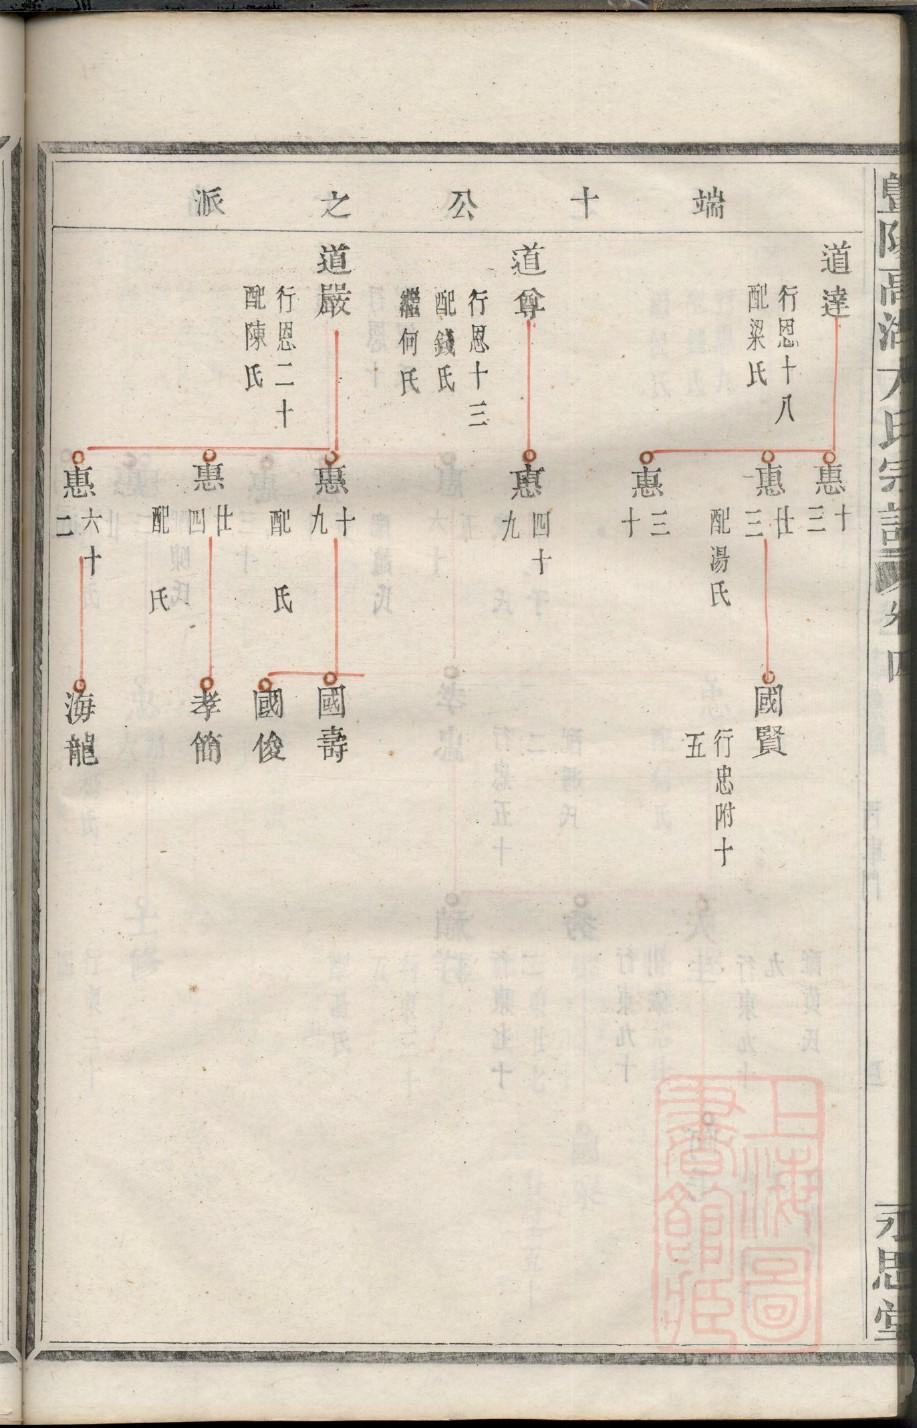 端十公之派
道達
行恩十八
配梁氏
道尊
行恩十三
配錢氏
繼何氏
道嚴
行恩二十
配陳氏
惠十三
惠廿三
配湯氏
惠三十
惠四十九
惠十九
配 氏
惠廿四
配 氏
惠六十二
國賢
行忠附十五
國壽
國俊
孝簡
海龍
氏宗譜
卷四
永思堂
上海圖書館藏